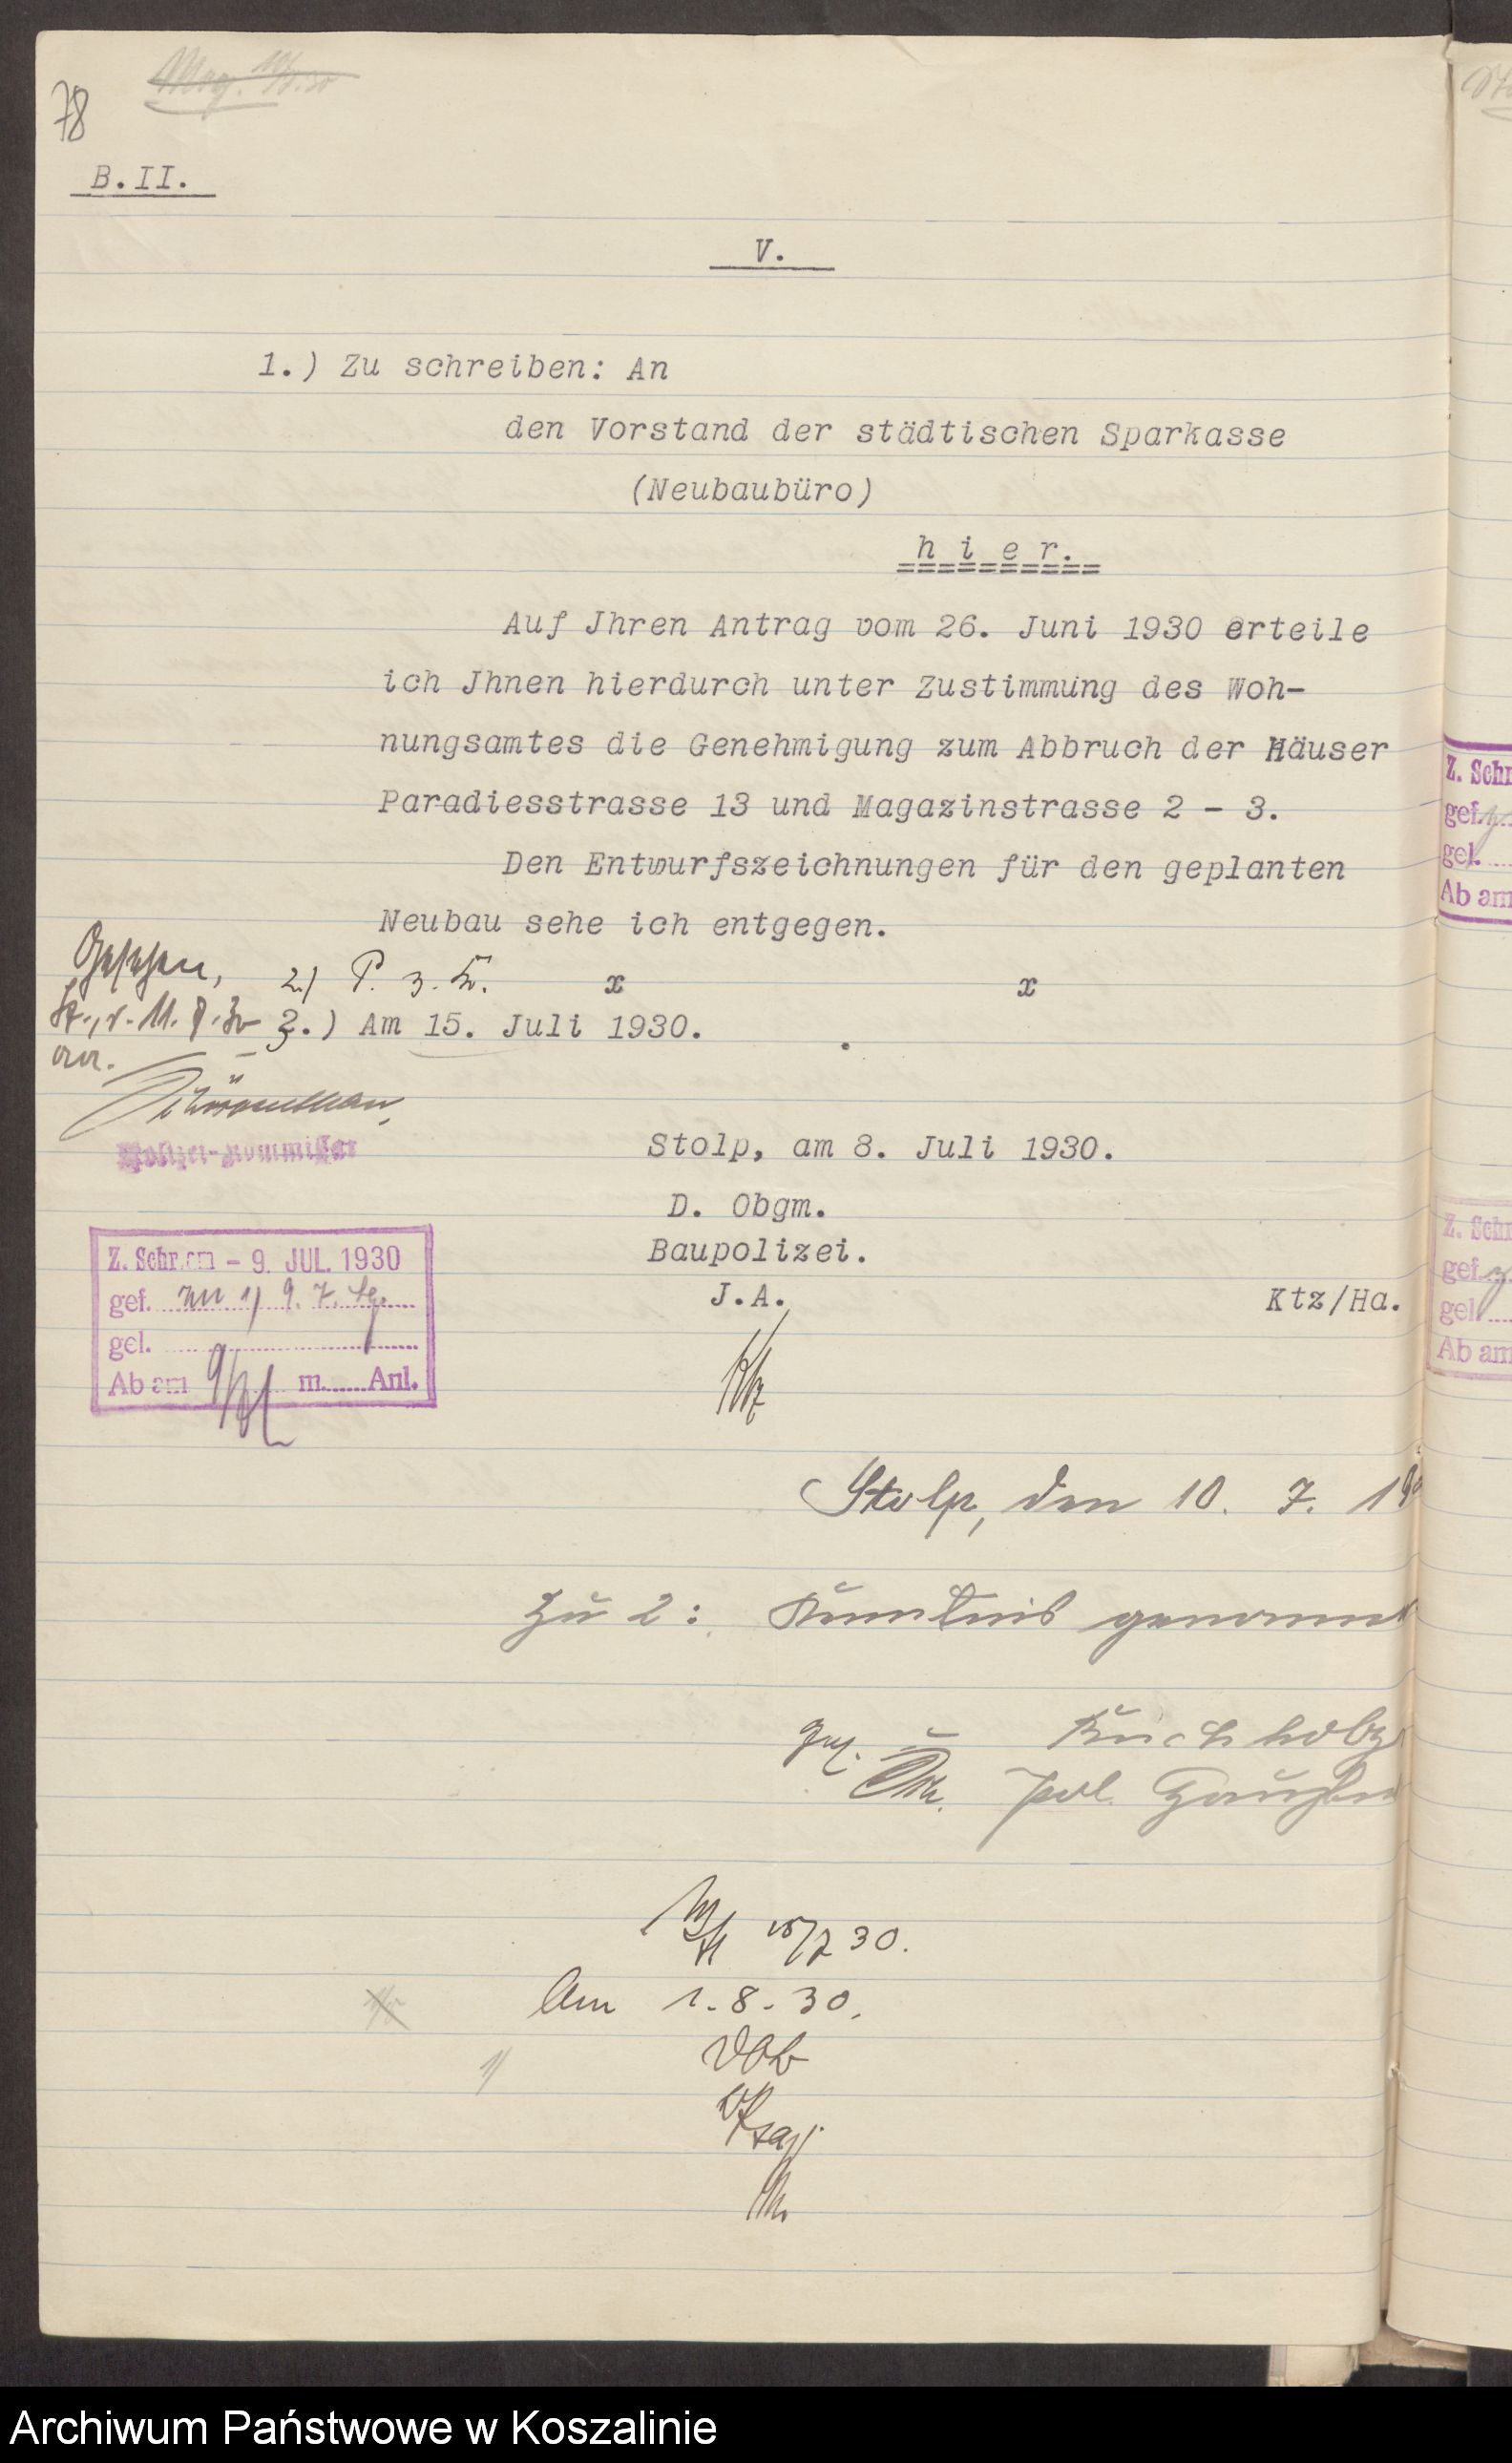 78
B.II.
V.
1.) Zu schreiben: An
den Vorstand der städtischen Sparkasse
(Neubaubüro)
h i e r.
==========
Auf Jhren Antrag vom 26. Juni 1930 erteile
ich Jhnen hierdurch unter Zustimmung des Woh-
nungsamtes die Genehmigung zum Abbruch der Häuser
Paradiesstrasse 13 und Magazinstrasse 2 - 3.
Den Entwurfszeichnungen für den geplanten
Neubau sehe ich entgegen.
Gesehen,
2.) P. z. K.
x x
3.) Am 15. Juli 1930.
Polizei-Kommissar
Stolp, am 8. Juli 1930.
D. Obgm.
Baupolizei.
J.A.
Ktz/Ha.
Z. Schr. am - 9. JUL. 1930
gef. zu 1) 9. 7.
gel.
Ab am 9/7 m. Anl.
Stolp, den 10. 7. 19
Zu 2: Kenntnis genomm
Buchholz
15/7 30.
Am 1.8.30.
Z. Schr
gef.
gel.
Ab am
Z. Schr
gef.
gel.
Ab am
Archiwum Państwowe w Koszalinie